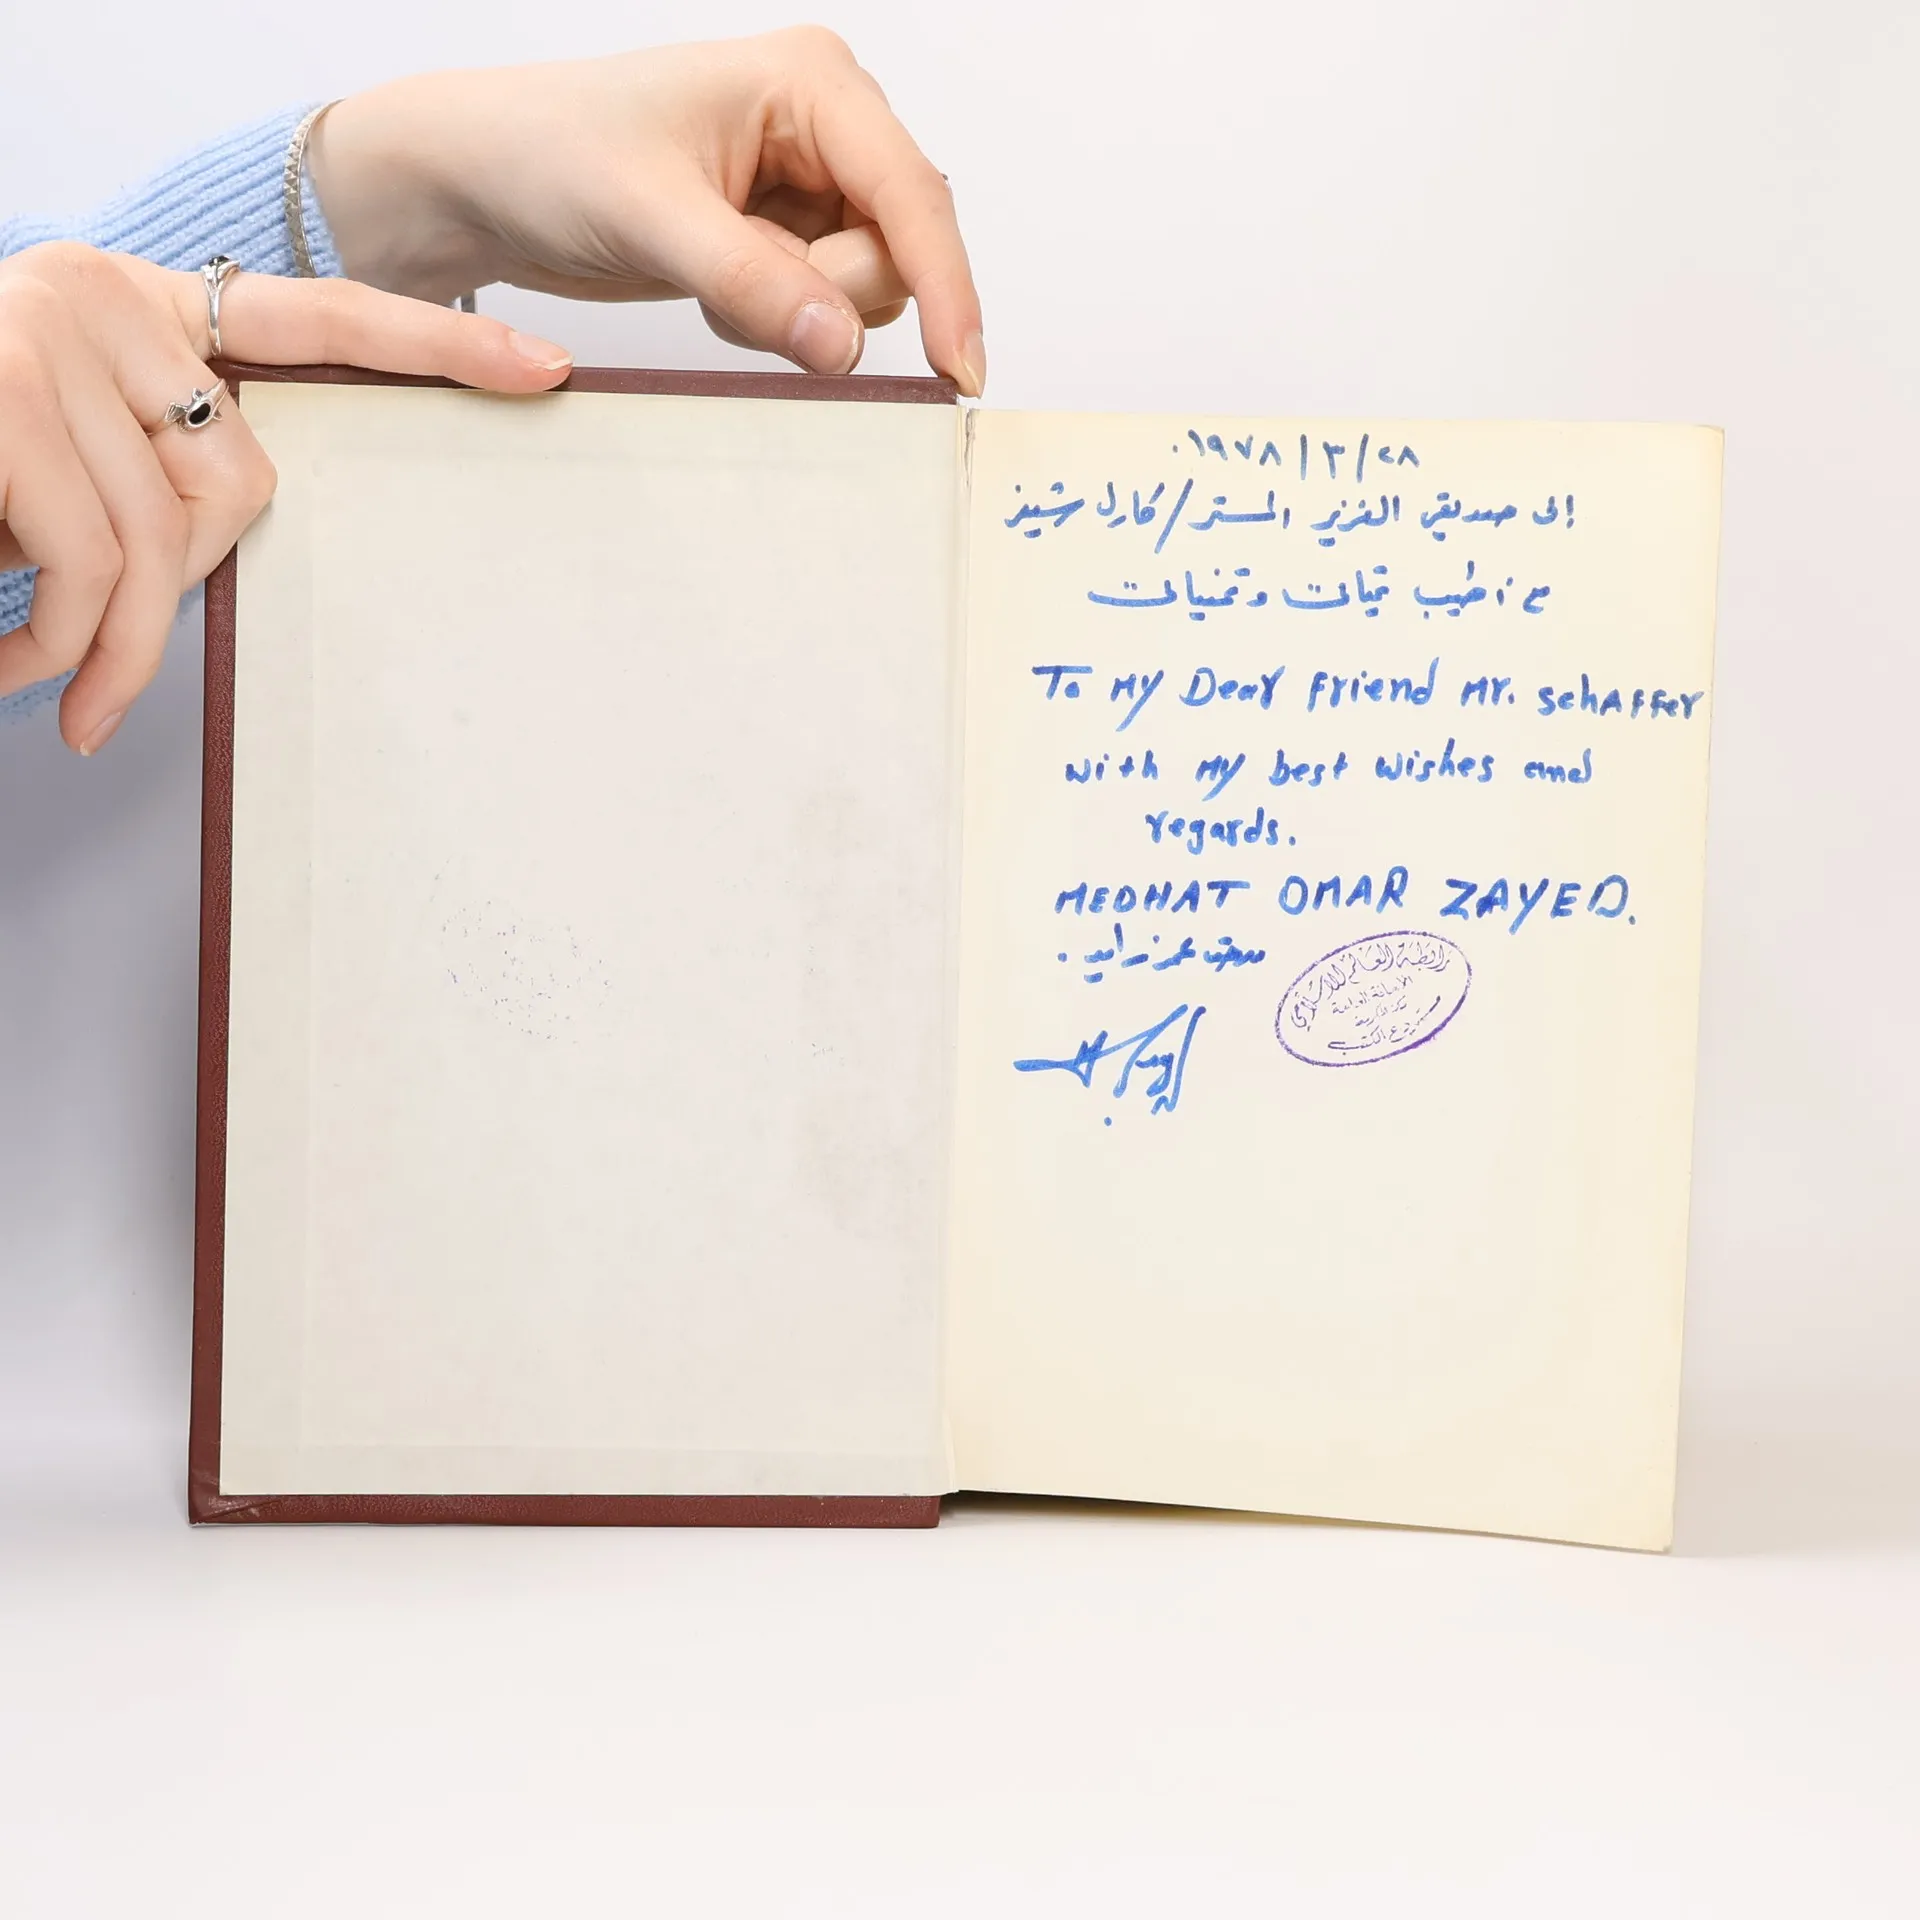 ١٩٧٨/٣/٢٨.
إلى صديقي العزيز المستر/كارل شيفر
مع أطيب تحياتي وتمنياتي
To My Dear Friend Mr. Schaffer
with My best wishes and
regards.
MEDHAT OMAR ZAYED.
مدحت عمر زايد.
رابطة العالم الإسلامي
الأمانة العامة
مكة المكرمة
مستودع الكتب